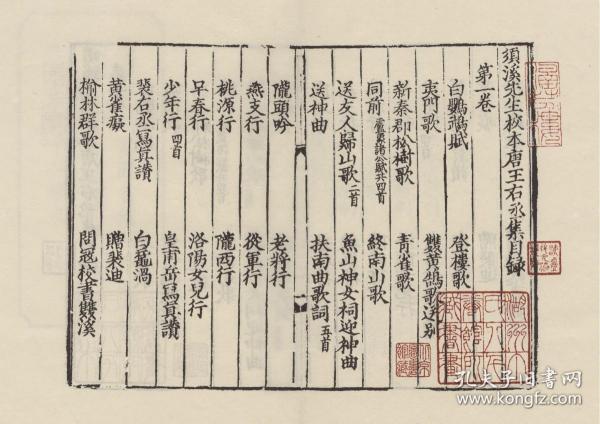 須溪先生校本唐王右丞集目録
第一卷
白鸚鵡賦 登樓歌
夷門歌 雙黃鵠歌送别
新秦郡松樹歌 青雀歌
同前 盧象諸公賦共四首 終南山歌
送友人歸山歌 二首 魚山神女祠迎神曲
送神曲 扶南曲歌詞 五首
隴頭吟 老將行
燕支行 從軍行
桃源行 隴西行
早春行 洛陽女兒行
少年行 四首 皇甫岳寫真讃
裴右丞寫真讃 白黿渦
黃雀癡 贈裴迪
榆林群歌 問寇校書雙溪
孔夫子旧书网
www.kongfz.com